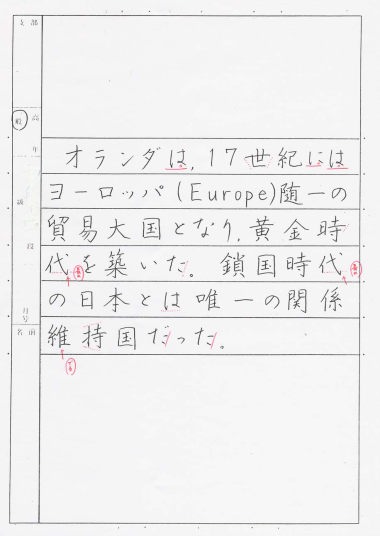 オランダは,17世紀には
ヨーロッパ(Europe)随一の
貿易大国となり,黄金時
代を築いた。鎖国時代
の日本とは唯一の関係
維持国だった。
支部
高
般
年
級
段
月号
名前